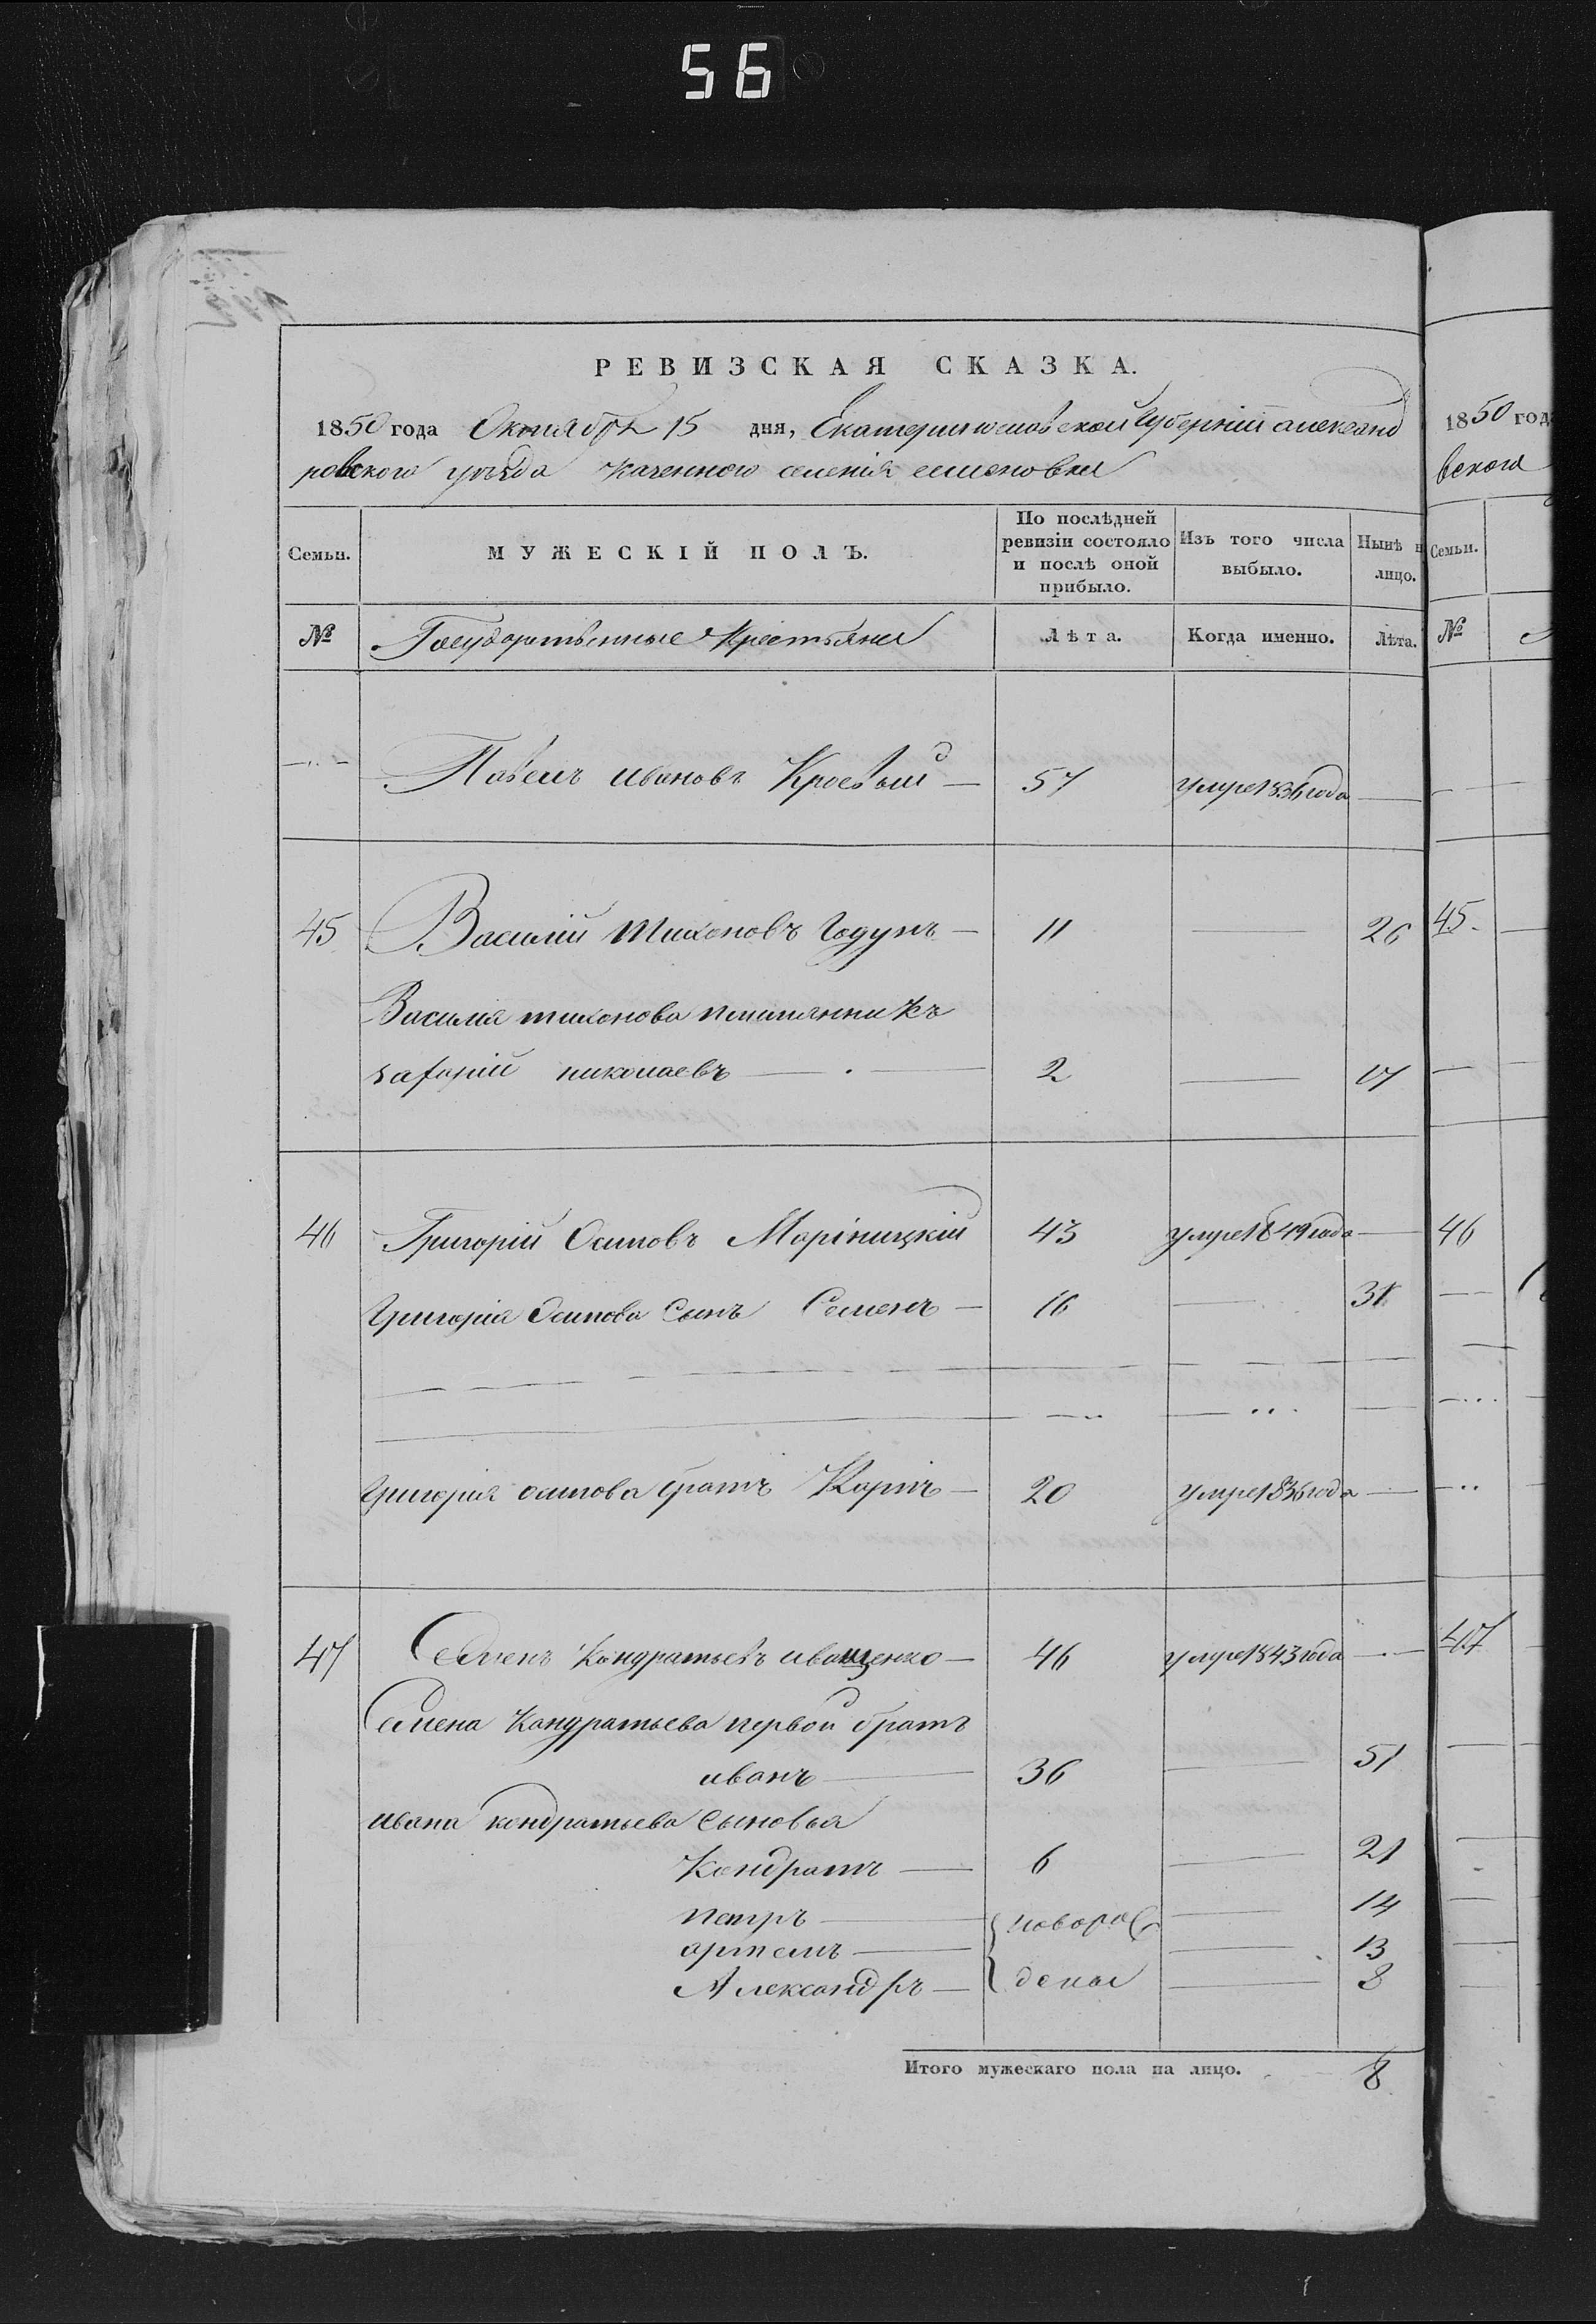 56
РЕВИЗСКАЯ СКАЗКА.
1850 года Октября 15 дня, Екатеринославской Губерніи александ
ровского уѣзда казенного селенія семеновки
Семьи.
МУЖЕСКІЙ ПОЛЪ.
По послѣдней ревизіи состояло и послѣ оной прибыло.
Изъ того числа выбыло.
Нынѣ н лицо.
№ Государственные Крестьяне Лѣта. Когда именно. Лѣта.
Павелъ ивановъ 57 умре 1836 года
45 Василій тихоновъ Годунъ 11 26
Василия тихонова племянникъ
захарій николаевъ 2 17
46 Григорій Осиповъ Маріницкій 43 умре 1849 года
Григорія Осипова Сынъ Семенъ 16 31
Григорія осипова братъ Карпъ 20 умре 1836 года
47 Семенъ Кондратьевъ иващенко 46 умре 1843 года
Семена Кондратьева первой братъ
иванъ 36 51
ивана кондратьева Сыновья
Кондратъ 6 21
петръ новорож 14
артемъ 13
Александръ дены 8
Итого мужескаго пола на лицо. 8
1850 год
вского
Семьи.
№
45.
46
47